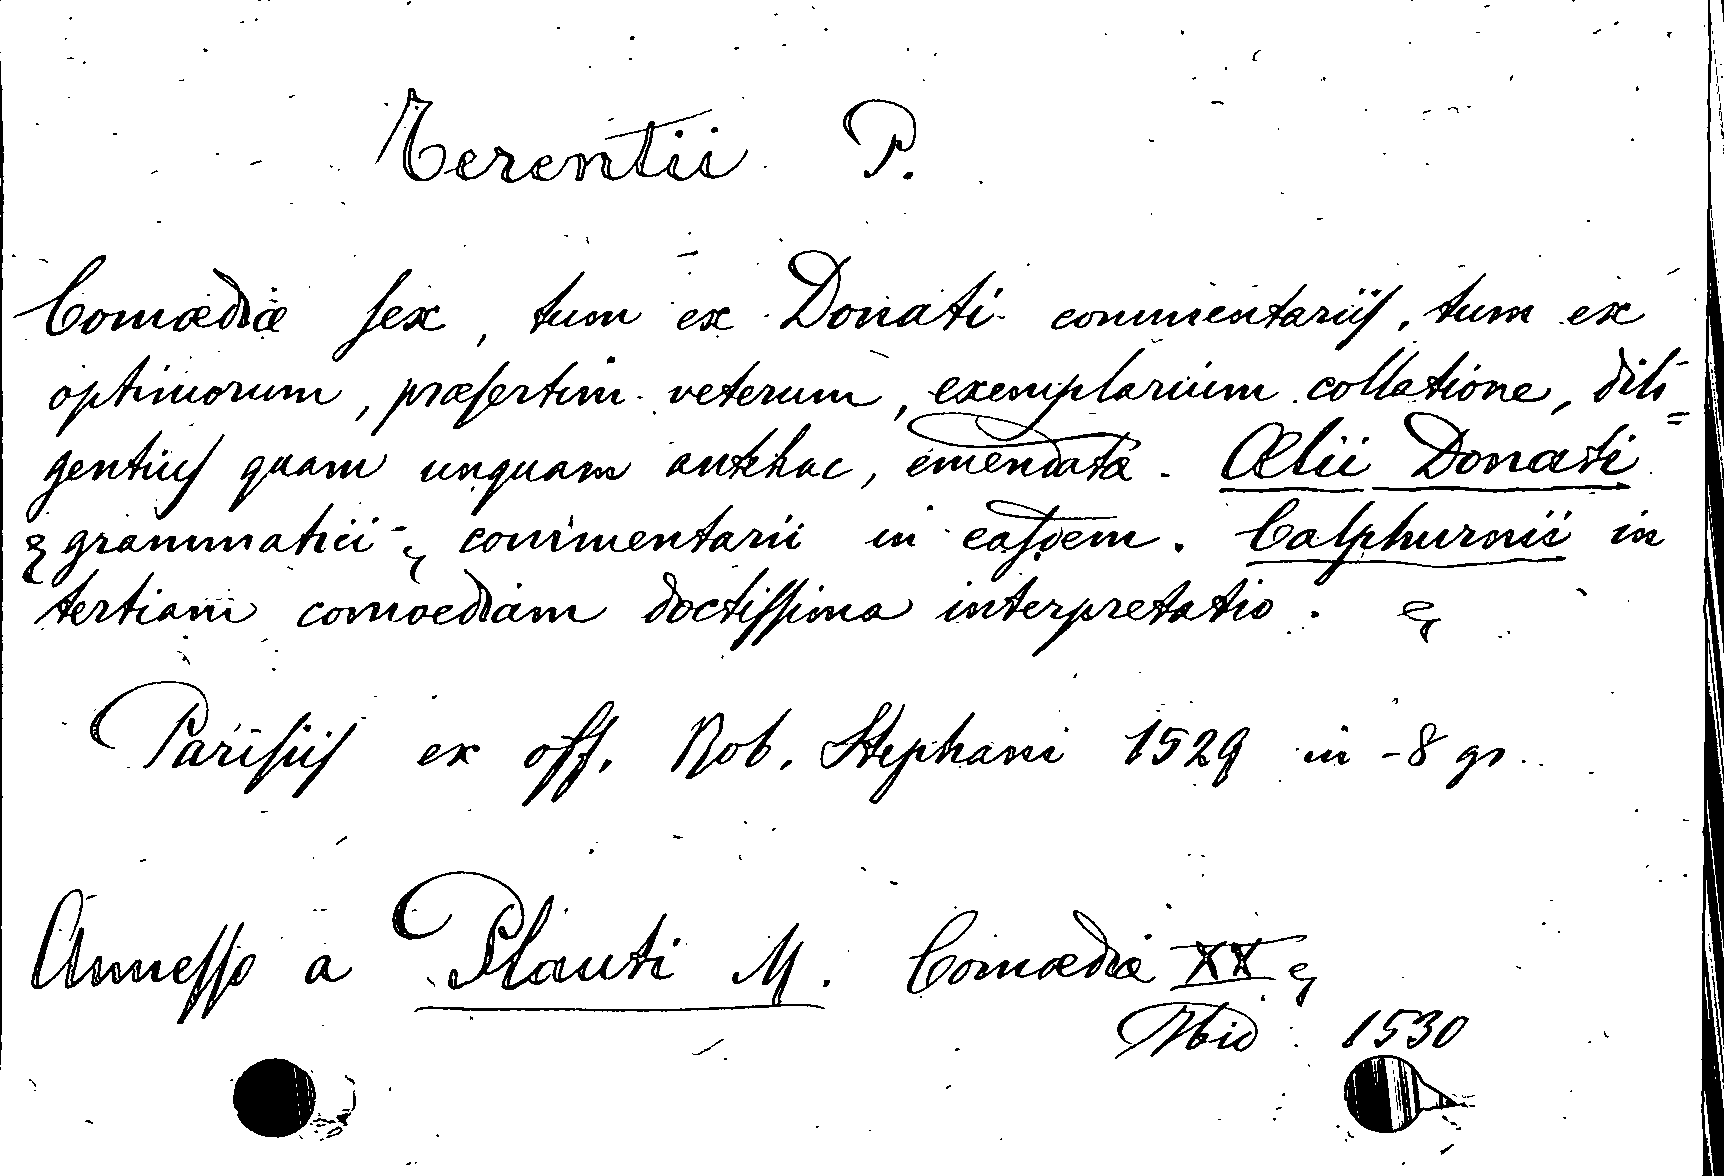 Terentii P.
Comœdiæ sex, tum ex Donati commentariis, tum ex
optimorum, præsertim veterum, exemplarium collatione, dili=
gentius quam unquam antehac, emendatæ. Œlii Donati
grammatici commentarii in easdem. Calphurnii in
tertiam comoediam doctissima interpretatio.
Parisiis ex off. Rob. Stephani 1529 in-8 gr.
Annesso a Plauti M. Comœdiæ XX
Ibid. 1530